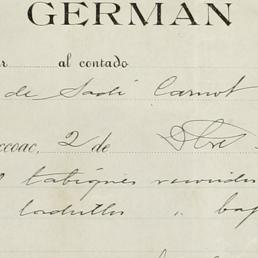 GERMAN
r al contado
de Sadi Carnot
xcoac, 2 de Dbre
tabiques recocidos
ladrillos "